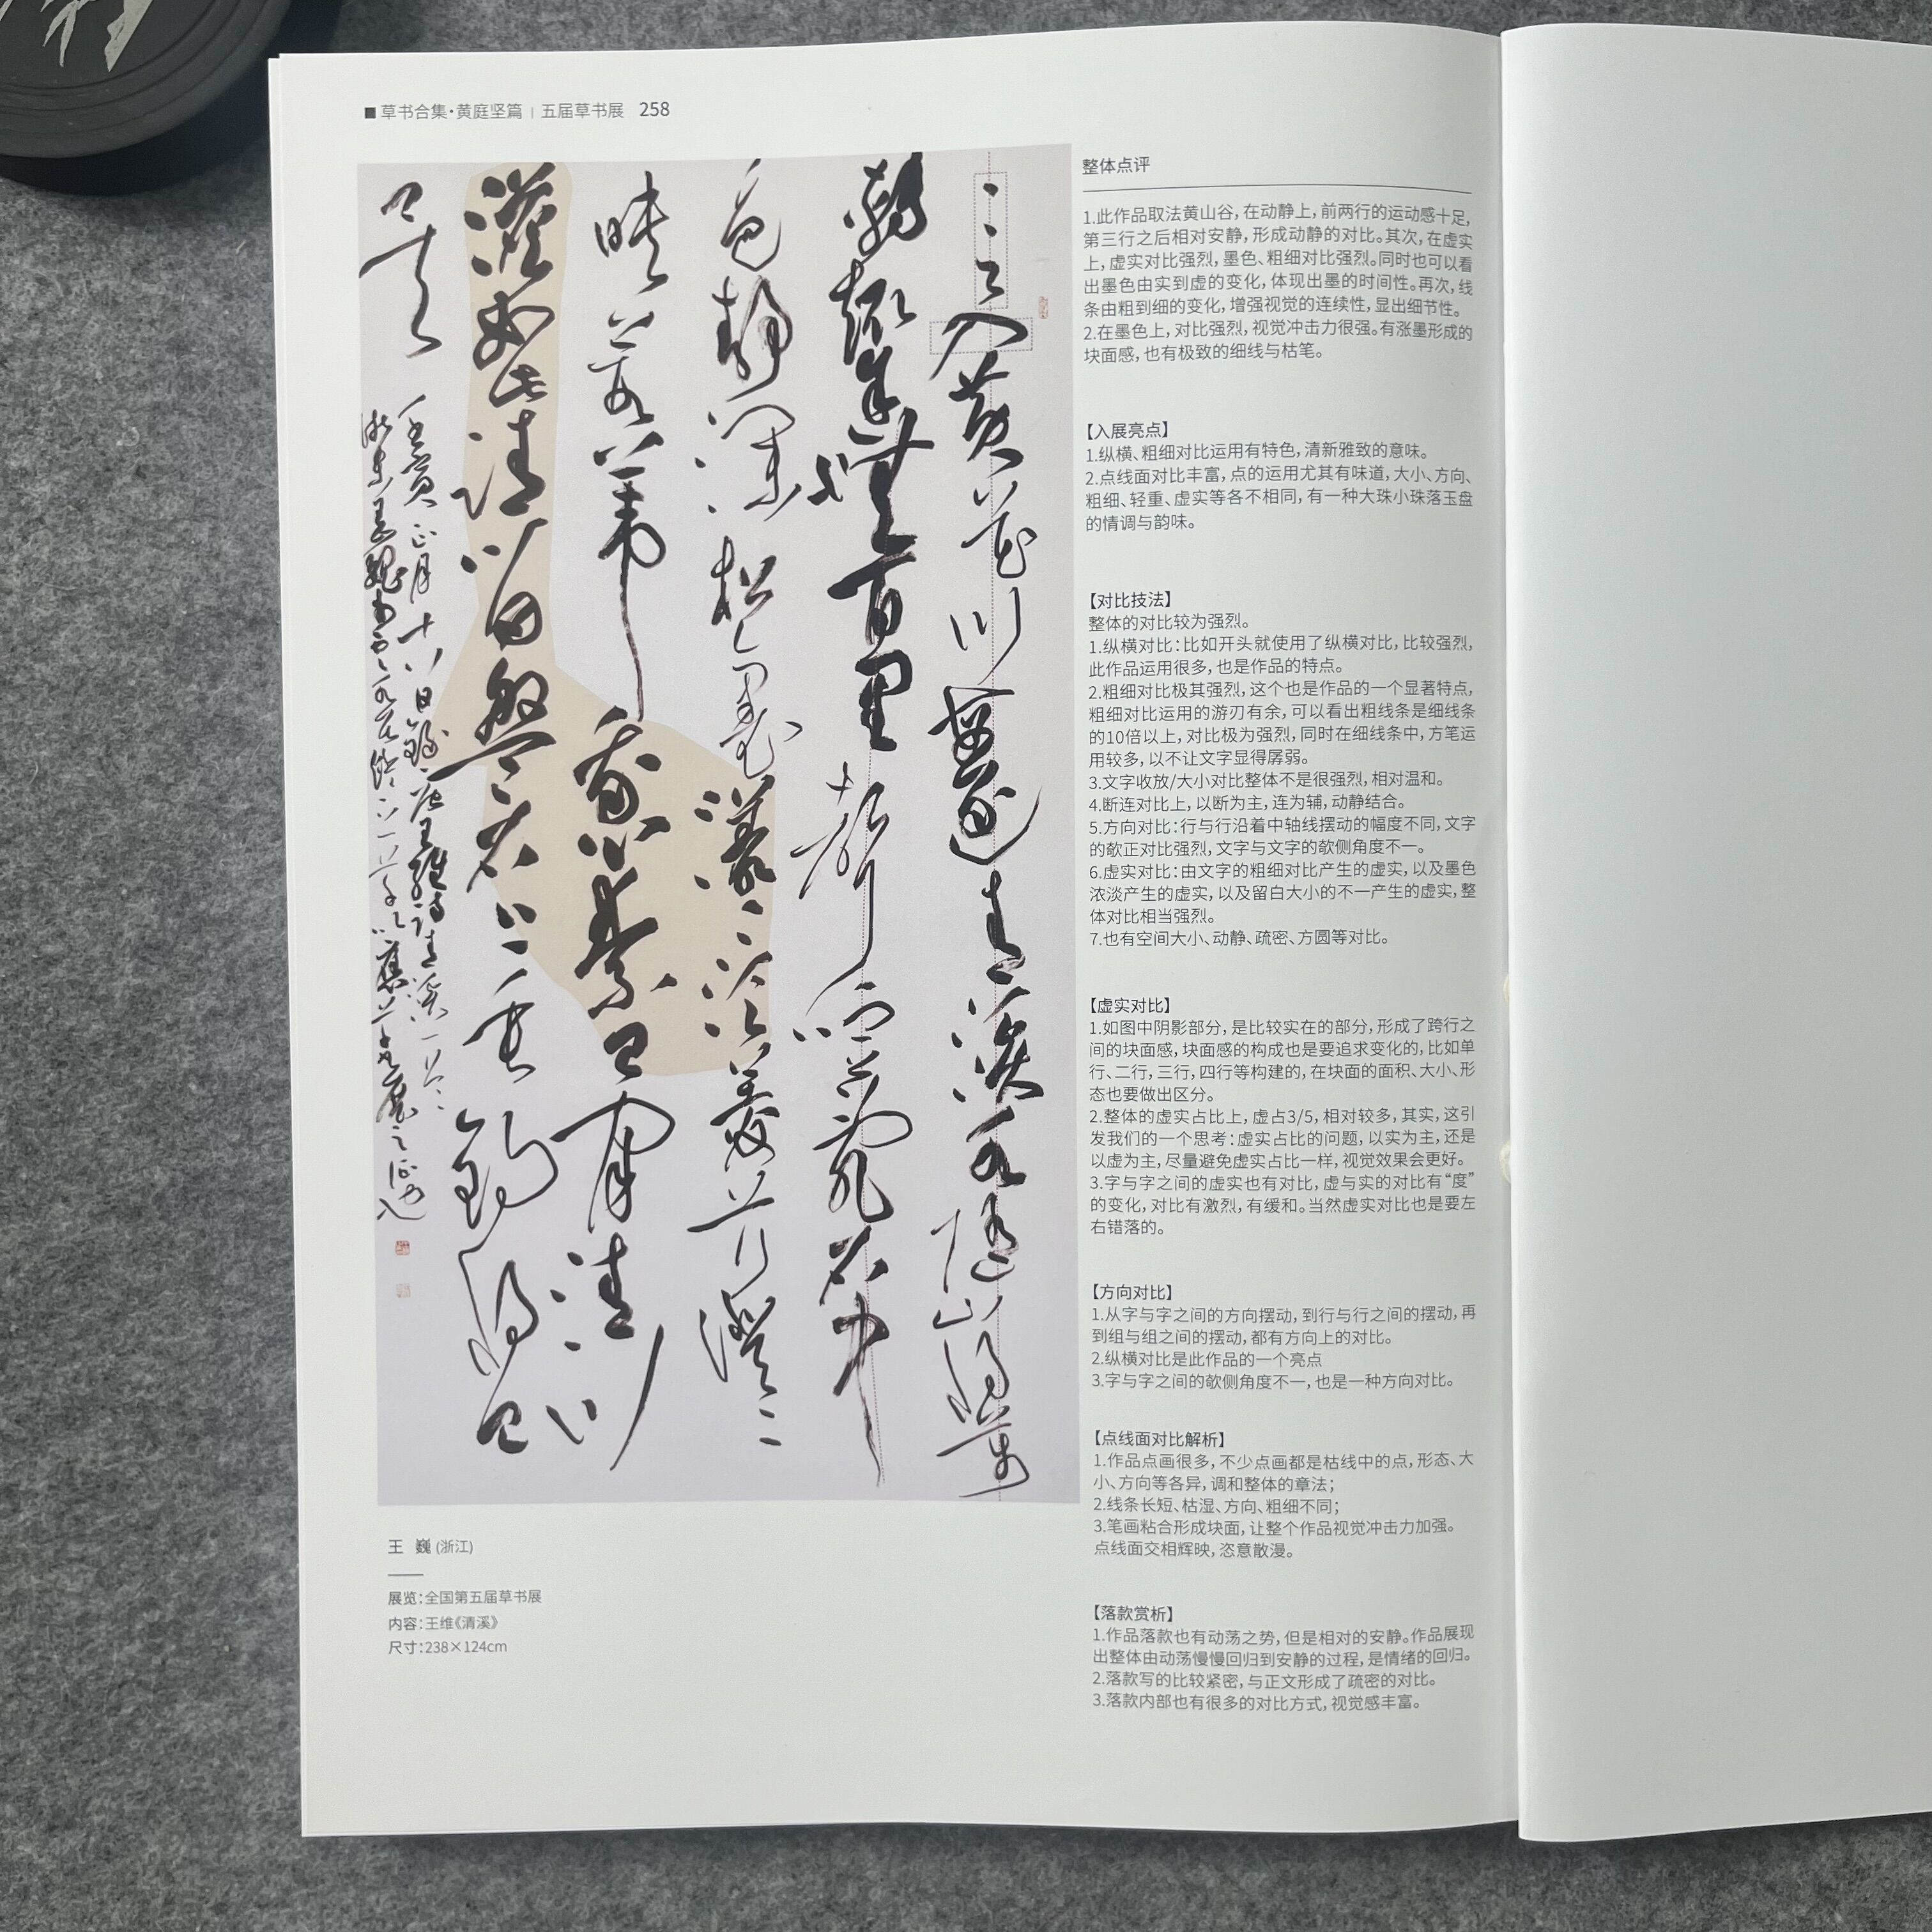 ■ 草书合集·黄庭坚篇 | 五届草书展 258
言入黄花川每逐青溪水隨山將萬
轉趣途無百里聲喧亂石中
色靜深松裏漾漾泛菱荇澄澄
映葭葦我心素已閑清川
澹如此請留盤石上垂釣將已
矣
壬寅正月十八日錄唐王維詩清溪一首
整体点评
1.此作品取法黄山谷，在动静上，前两行的运动感十足，
第三行之后相对安静，形成动静的对比。其次，在虚实
上，虚实对比强烈，墨色、粗细对比强烈。同时也可以看
出墨色由实到虚的变化，体现出墨的时间性。再次，线
条由粗到细的变化，增强视觉的连续性，显出细节性。
2.在墨色上，对比强烈，视觉冲击力很强。有涨墨形成的
块面感，也有极致的细线与枯笔。
【入展亮点】
1.纵横、粗细对比运用有特色，清新雅致的意味。
2.点线面对比丰富，点的运用尤其有味道，大小、方向、
粗细、轻重、虚实等各不相同，有一种大珠小珠落玉盘
的情调与韵味。
【对比技法】
整体的对比较为强烈。
1.纵横对比：比如开头就使用了纵横对比，比较强烈，
此作品运用很多，也是作品的特点。
2.粗细对比极其强烈，这个也是作品的一个显著特点，
粗细对比运用的游刃有余，可以看出粗线条是细线条
的10倍以上，对比极为强烈，同时在细线条中，方笔运
用较多，以不让文字显得孱弱。
3.文字收放/大小对比整体不是很强烈，相对温和。
4.断连对比上，以断为主，连为辅，动静结合。
5.方向对比：行与行沿着中轴线摆动的幅度不同，文字
的欹正对比强烈，文字与文字的欹侧角度不一。
6.虚实对比：由文字的粗细对比产生的虚实，以及墨色
浓淡产生的虚实，以及留白大小的不一产生的虚实，整
体对比相当强烈。
7.也有空间大小、动静、疏密、方圆等对比。
【虚实对比】
1.如图中阴影部分，是比较实在的部分，形成了跨行之
间的块面感，块面感的构成也是要追求变化的，比如单
行、二行，三行，四行等构建的，在块面的面积、大小、形
态也要做出区分。
2.整体的虚实占比上，虚占3/5，相对较多，其实，这引
发我们的一个思考：虚实占比的问题，以实为主，还是
以虚为主，尽量避免虚实占比一样，视觉效果会更好。
3.字与字之间的虚实也有对比，虚与实的对比有“度”
的变化，对比有激烈，有缓和。当然虚实对比也是要左
右错落的。
【方向对比】
1.从字与字之间的方向摆动，到行与行之间的摆动，再
到组与组之间的摆动，都有方向上的对比。
2.纵横对比是此作品的一个亮点
3.字与字之间的欹侧角度不一，也是一种方向对比。
【点线面对比解析】
1.作品点画很多，不少点画都是枯线中的点，形态、大
小、方向等各异，调和整体的章法；
2.线条长短、枯湿、方向、粗细不同；
3.笔画粘合形成块面，让整个作品视觉冲击力加强。
点线面交相辉映，恣意散漫。
【落款赏析】
1.作品落款也有动荡之势，但是相对的安静。作品展现
出整体由动荡慢慢回归到安静的过程，是情绪的回归。
2.落款写的比较紧密，与正文形成了疏密的对比。
3.落款内部也有很多的对比方式，视觉感丰富。
王 巍 (浙江)
展览：全国第五届草书展
内容：王维《清溪》
尺寸：238×124cm